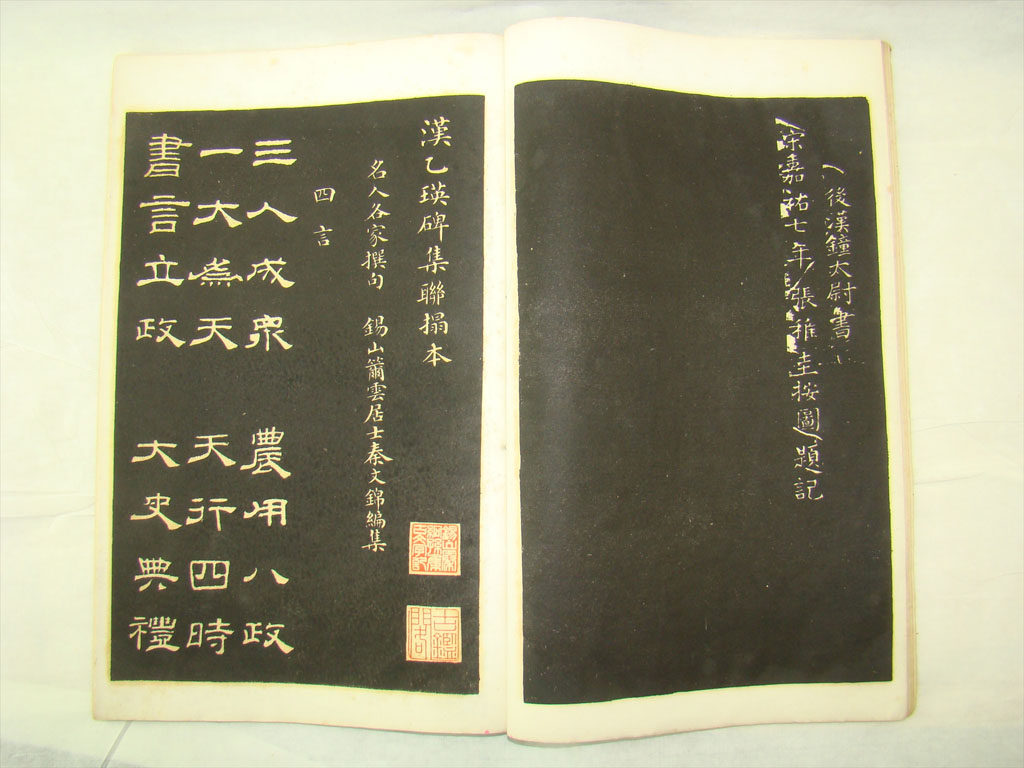 後漢鐘太尉書
宋嘉祐七年張稚圭按圖題記
漢乙瑛碑集聯搨本
名人各家撰句 錫山籋雲居士秦文錦編集
四言
三人成衆 農用八政
一大爲天 天行四時
書言立政 大史典禮
古鑑閣